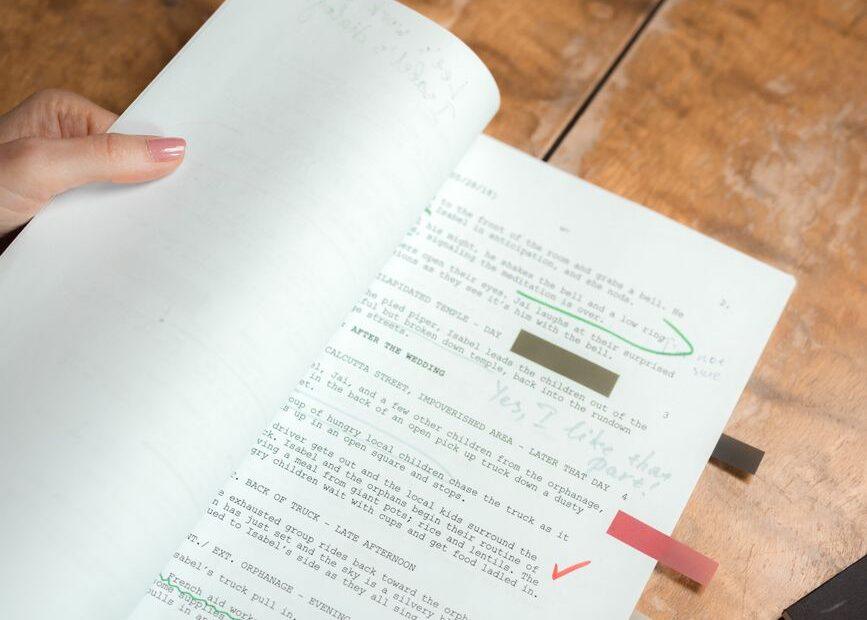 to the front of the room and grabs a bell. He
Isabel in anticipation, and she nods.
2.
his might, he shakes the bell and a low ring
signaling the meditation is over.
open their eyes, Jai laughs at their surprised
as they see it's him with the bell.
not
sure
ILAPIDATED TEMPLE - DAY
3
he pied piper, Isabel leads the children out of the
ful but broken down temple, back into the rundown
streets.
AFTER THE WEDDING
Yes, I like that
part!
CALCUTTA STREET, IMPOVERISHED AREA - LATER THAT DAY 4
el, Jai, and a few other children from the orphanage,
in the back of an open pick up truck down a dusty
et.
oup of hungry local children chase the truck as it
s up in an open square and stops.
driver gets out and the local kids surround the
ck. Isabel and the orphans begin their routine of
ving a meal from giant pots; rice and lentils. The
gry children wait with cups and get food ladled in.
. BACK OF TRUCK - LATE AFTERNOON
e exhausted group rides back toward the orph
n has just set and the sky is a silvery b
ued to Isabel's side as they all sing
NT./ EXT. ORPHANAGE - EVENING
sabel's truck pull in.
French aid work
ome supplies
ulls in ar